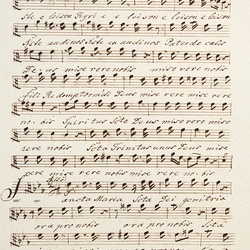 ele e leison Kyri e e leison e leison e leison
Xste audinos Xste ex audi nos Pater de celis
Deus mise rere nobis mise rere nobis
fili Redemptor mundi Deus mise rere mise rere
no-bis Spiritus Sste Deus mise rere mise
rere nobis Sste Trinitas unus Deus mise
pere mise rere nobis mise rere no-bis
Sancta Maria Sste Dei genitrix
ora pro nobis ora pro nobis Ssta